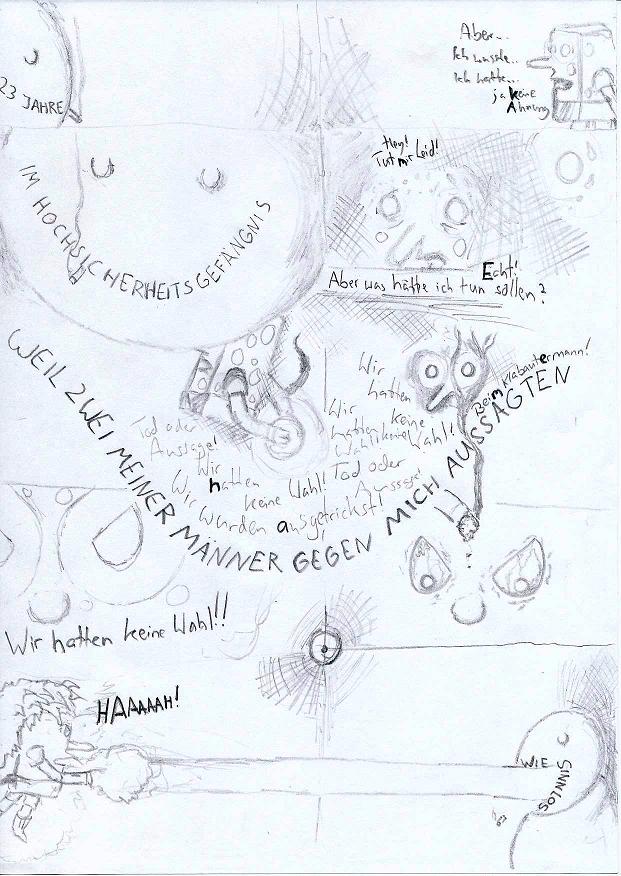 23 JAHRE
Aber...
Ich wusste...
Ich hatte...
ja keine
Ahnung
IM HOCHSICHERHEITSGEFÄNGNIS
Hey!
Tut mir Leid!
Echt!
Aber was hätte ich tun sollen?
WEIL ZWEI MEINER MÄNNER GEGEN MICH AUSSAGTEN
Wir
hatten
keine
Wahl!
Beim Klabautermann!
Wir
hatten
Wahl
Tod oder
Aussage!
Wir
hatten
keine Wahl!
Tod oder
Aussage!
Wir wurden ausgetrickst!
Wir hatten keine Wahl!!
HAAAAAH!
WIE
SINNLOS